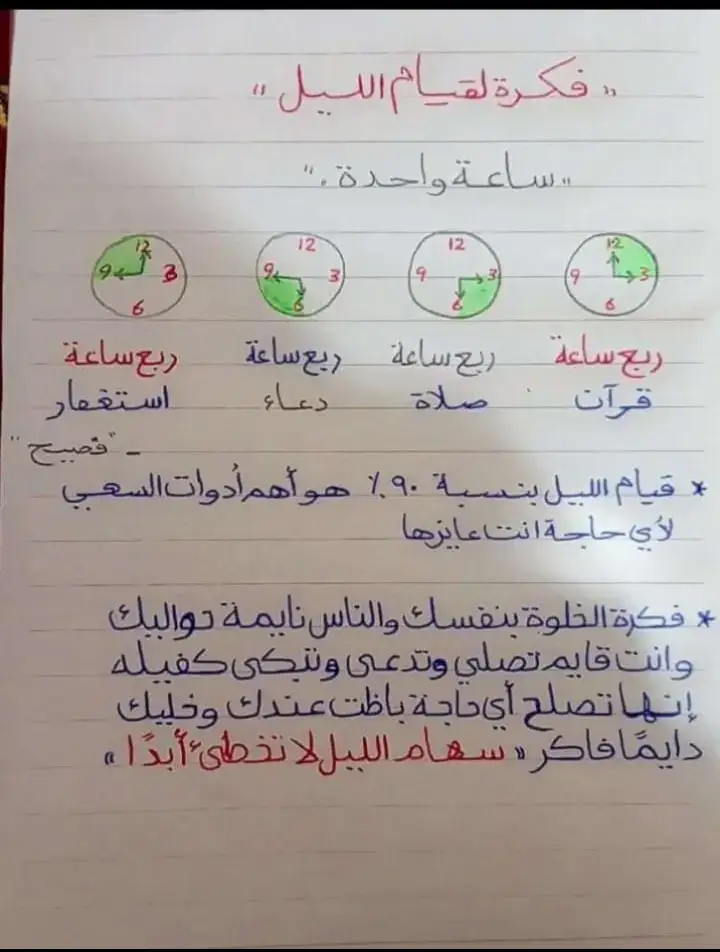 "فكرة لقيام الليل"
"ساعة واحدة."
12 3 6 9
12 3 6 9
12 3 6 9
12 3 6 9
ربع ساعة ربع ساعة ربع ساعة ربع ساعة
قرآن صلاة دعاء استغفار
- "فصيح"
* قيام الليل بنسبة ٩٠٪ هو أهم أدوات السعي
لأي حاجة انت عايزها
* فكرة الخلوة بنفسك والناس نايمة حواليك
وانت قايم تصلي وتدعى وتبكى كفيله
إنها تصلح أي حاجة باظت عندك وخليك
دايمًا فاكر « سهام الليل لا تخطئ أبدًا »